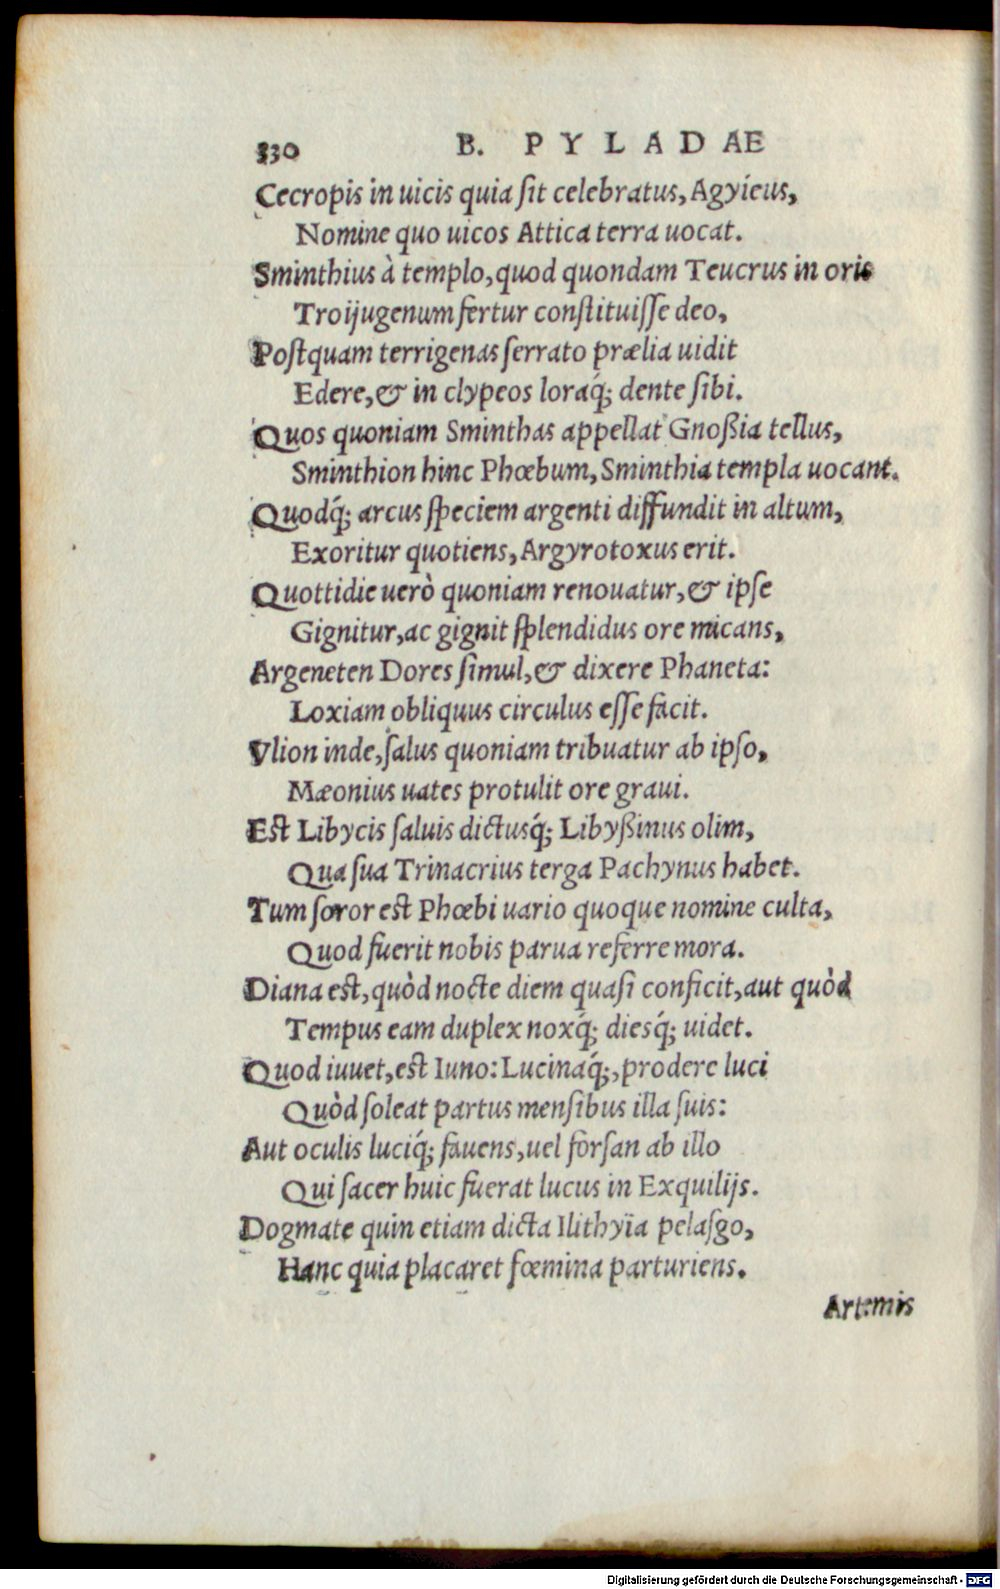 330 B. PYLADAE
Cecropis in uicis quia ſit celebratus, Agyieus,
Nomine quo uicos Attica terra uocat.
Sminthius à templo, quod quondam Teucrus in oris
Troijugenum fertur conſtituiſſe deo,
Poſtquam terrigenas ſerrato prælia uidit
Edere, & in clypeos loraq́; dente ſibi.
Quos quoniam Sminthas appellat Gnoßia tellus,
Sminthion hinc Phœbum, Sminthia templa uocant.
Quodq́; arcus ſpeciem argenti diffundit in altum,
Exoritur quotiens, Argyrotoxus erit.
Quottidie uerò quoniam renouatur, & ipſe
Gignitur, ac gignit ſplendidus ore micans,
Argeneten Dores ſimul, & dixere Phaneta:
Loxiam obliquus circulus eſſe facit.
Vlion inde, ſalus quoniam tribuatur ab ipſo,
Mæonius uates protulit ore graui.
Est Libycis ſaluis dictusq́; Libyßinus olim,
Qua ſua Trinacrius terga Pachynus habet.
Tum ſoror est Phœbi uario quoque nomine culta,
Quod fuerit nobis parua referre mora.
Diana est, quòd nocte diem quaſi conficit, aut quòd
Tempus eam duplex noxq́; diesq́; uidet.
Quod iuuet, est Iuno: Lucinaq́;, prodere luci
Quòd ſoleat partus menſibus illa ſuis:
Aut oculis luciq́; fauens, uel forſan ab illo
Qui ſacer huic fuerat lucus in Exquilijs.
Dogmate quin etiam dicta Ilithyïa pelaſgo,
Hanc quia placaret fœmina parturiens.
Artemis
Digitalisierung gefördert durch die Deutsche Forschungsgemeinschaft - DFG